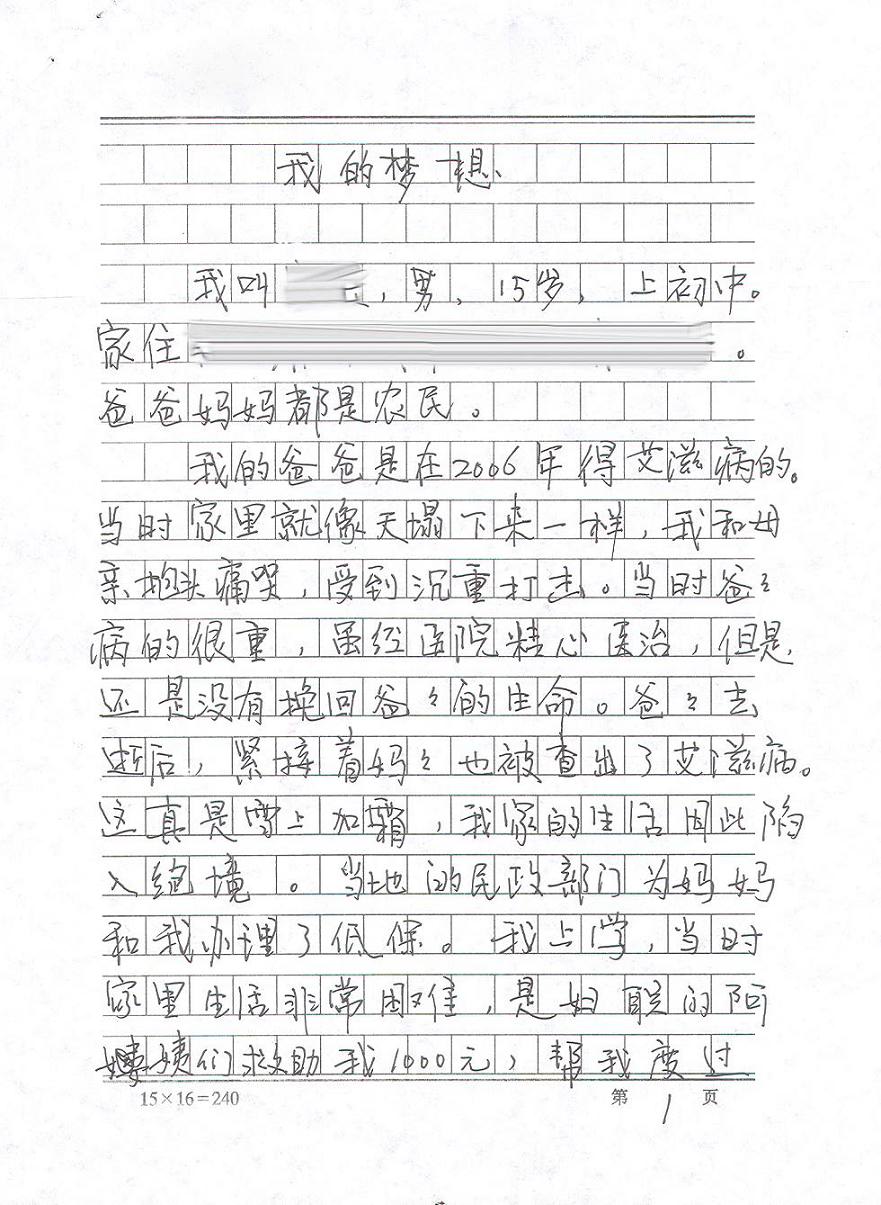 我的梦想
我叫，男，15岁，上初中。
家住。
爸爸妈妈都是农民。
我的爸爸是在2006年得艾滋病的。
当时家里就像天塌下来一样，我和母
亲抱头痛哭，受到沉重打击。当时爸々
病的很重，虽经医院精心医治，但是
还是没有挽回爸々的生命。爸々去
逝后，紧接着妈々也被查出了艾滋病。
这真是雪上加霜，我家的生活因此陷
入绝境。当地的民政部门为妈妈
和我办理了低保。我上学，当时
家里生活非常困难，是妇联的阿
姨们救助我1000元，帮我度过
15×16=240
第1页